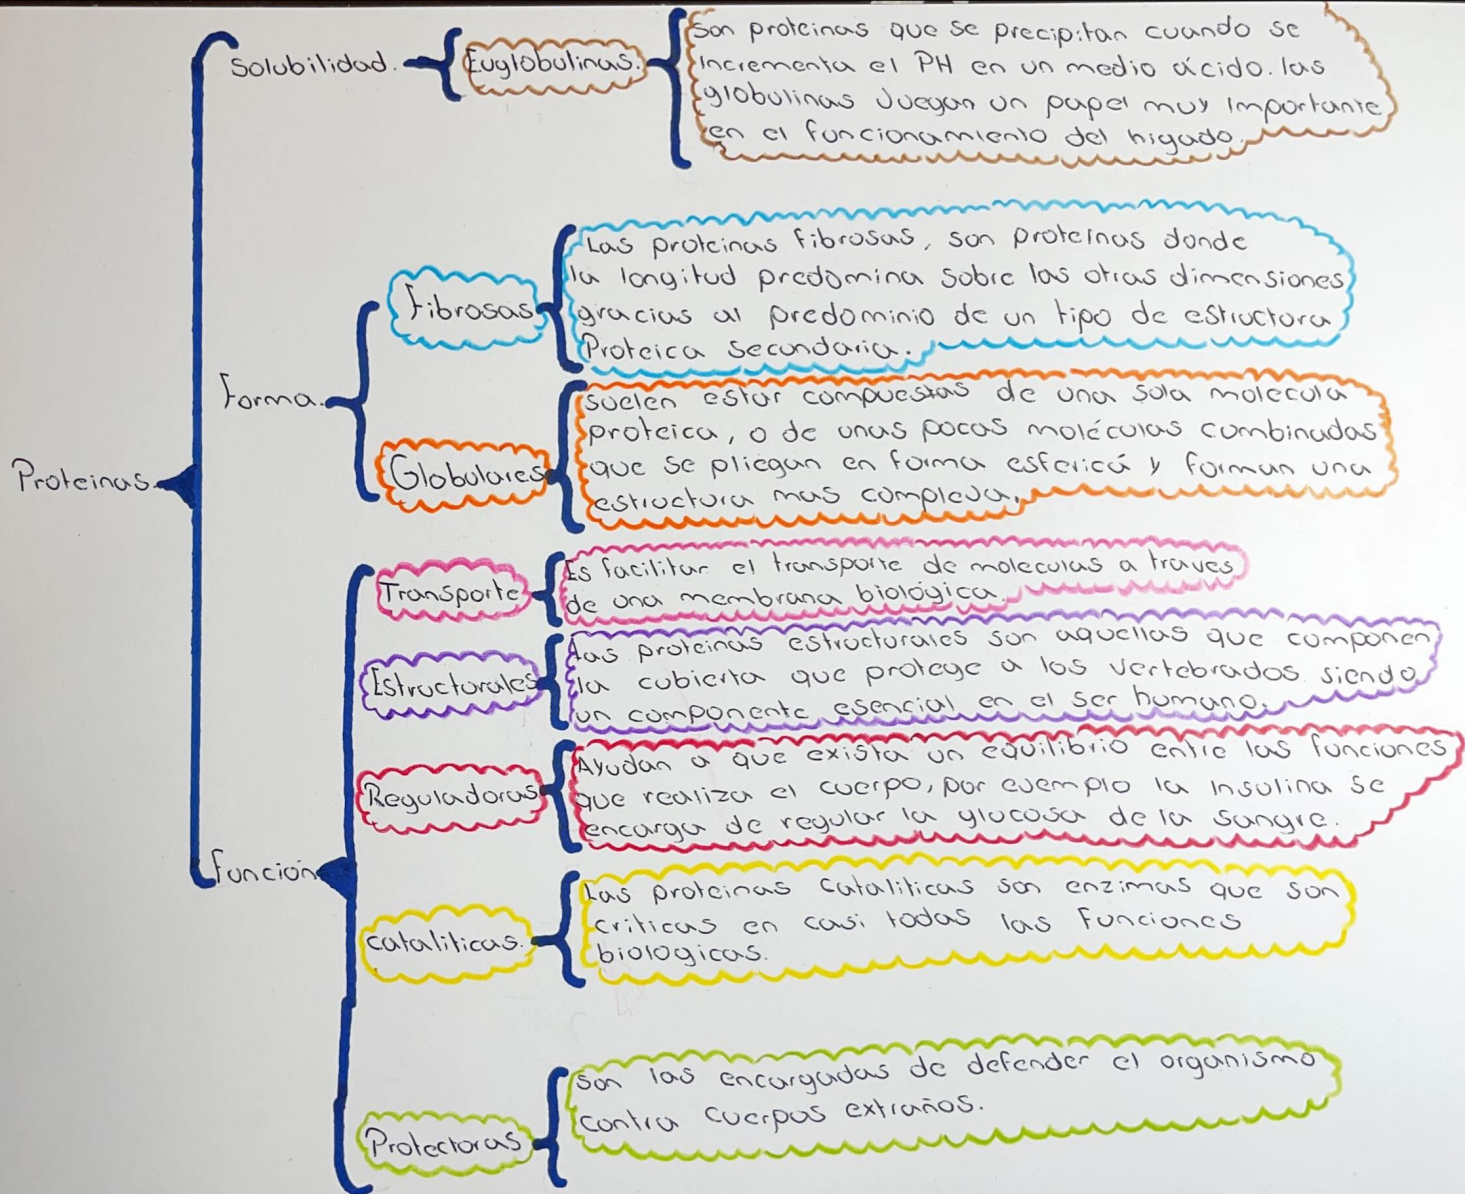 Proteinas.
Solubilidad.
Euglobulinas.
Son proteinas que se precipitan cuando se
incrementa el PH en un medio ácido. las
globulinas Juegan un papel muy importante
en el funcionamiento del higado.
Forma.
Fibrosas
Las proteinas fibrosas, son proteínas donde
la longitud predomina sobre las otras dimensiones
gracias al predominio de un tipo de estructura
Proteica secundaria.
Globulares
suelen estar compuestas de una sola molecula
proteica, o de unas pocas moléculas combinadas
que se pliegan en forma esfericá y forman una
estructura mas compleja.
Función
Transporte
Es facilitar el transporte de moleculas a traves
de una membrana biológica.
Estructurales
Las proteinas estructurales son aquellas que componen
la cubierta que protege a los vertebrados siendo
un componente esencial en el ser humano.
Reguladoras
Ayudan a que exista un equilibrio entre las funciones
que realiza el cuerpo, por ejemplo la Insulina se
encarga de regular la glucosa de la sangre.
cataliticas.
Las proteinas cataliticas son enzimas que son
criticas en casi todas las funciones
biologicas.
Protectoras
Son las encargadas de defender el organismo
contra cuerpos extraños.